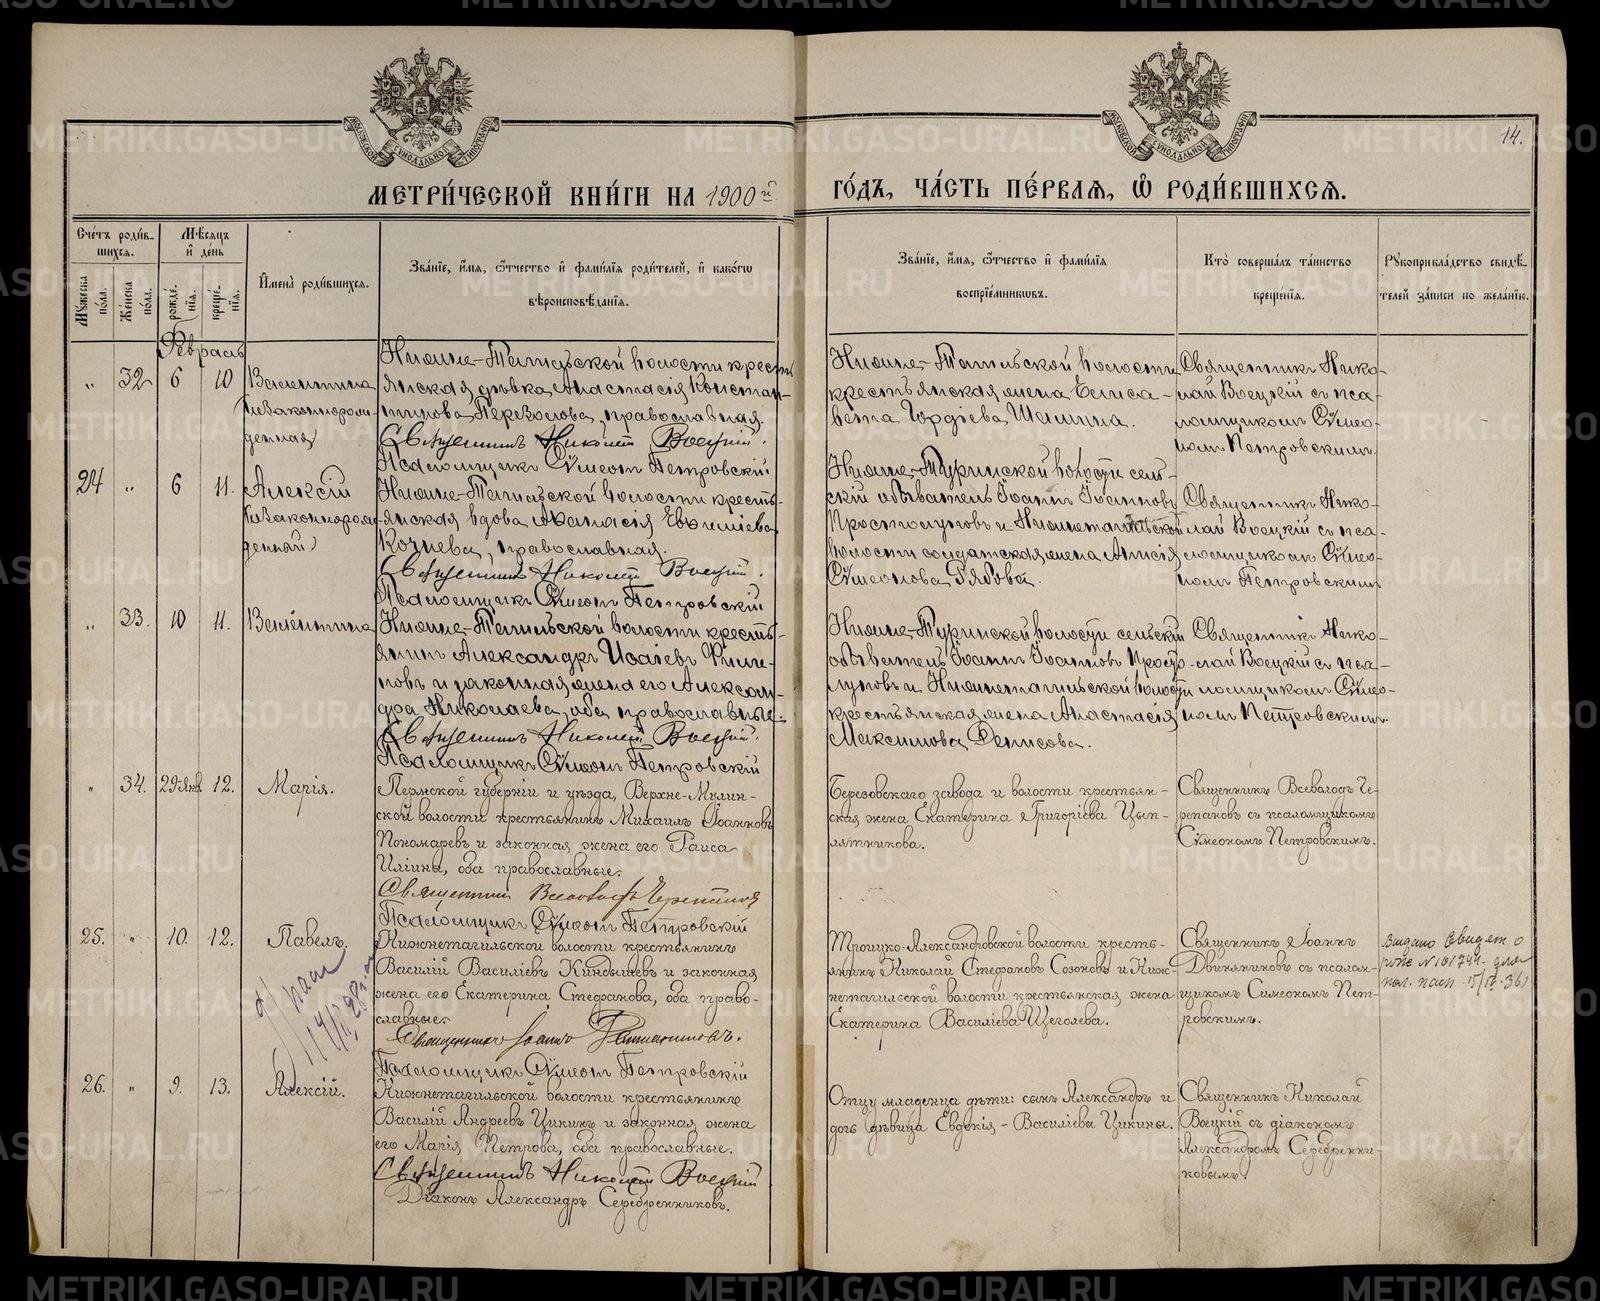 METRIKI.GASO-URAL.RU
14.
МЕТРИ́ЧЕСКОЙ КНИ́ГИ НА 1900й
ГО́ДЪ, ЧА́СТЬ ПЕ́РВАЯ, Ѡ РОДИ́ВШИХСЯ.
Сче́тъ роди́в-
шихся.
Мѣсяцъ
и҆ де́нь
Мꙋжеска по́ла.
Же́нска по́ла.
рожде́-
нїя.
креще́-
нїя.
И҆мена̀ роди́вшихся.
Зва́нїе, и҆́мя, ѻ҆́тчество и҆ фами́лїя роди́телей, и҆ како́гѡ
вѣроисповѣ́данїя.
Зва́нїе, и҆́мя, ѻ҆́тчество и҆ фами́лїя
воспрїе́мникѡвъ.
Кто̀ соверша́лъ та́инство
креще́нїя.
Рꙋкоприкла́дство свидѣ́-
телей за́писи по жела́нїю.
Февраль
„ 32 6 10 Валентина
(незаконнорож-
денная)
Нижне-Тагильской волости кресть-
янская дѣвка Анастасія Констан-
тинова Перезолова, православная.
Священникъ Николай Воецкій.
Псаломщикъ Сѵмеонъ Петровскій
Нижне-Тагильской волости
крестьянская жена Елиса-
вета Гордіева Шешина.
Священникъ Нико-
лай Воецкій съ пса-
ломщикомъ Сѵмео-
номъ Петровскимъ
24 „ 6 11. Алексій
(незаконнорож-
денный)
Нижне-Тагильской волости кресть-
янская вдова Аѳанасія Евѳиміева
Кочнева, православная.
Священникъ Николай Воецкій.
Псаломщикъ Сѵмеонъ Петровскій
Нижне-Туринской волости сель-
скій обыватель Іоаннъ Іоанновъ
Простолуповъ и Нижнетагильской
волости солдатская жена Анисія
Сѵмеонова Рябова.
Священникъ Нико-
лай Воецкій съ пса-
ломщикомъ Сѵмео-
номъ Петровскимъ
„ 33. 10 11. Валентина
Нижне-Тагильской волости кресть-
янинъ Александръ Исаіевъ Фили-
повъ и законная жена его Алексан-
дра Николаева, оба православные.
Священникъ Николай Воецкій.
Псаломщикъ Сѵмеонъ Петровскій
Нижне-Туринской волости сельскій
обыватель Іоаннъ Іоанновъ Просто-
луповъ и Нижнетагильской волости
крестьянская жена Анастасія
Максимова Денисова.
Священникъ Нико-
лай Воецкій съ пса-
ломщикомъ Сѵмео-
номъ Петровскимъ.
„ 34. 29 янв 12. Марія.
Пермской губерніи и уѣзда, Верхне-Мулин-
ской волости крестьянинъ Михаилъ Іоанновъ
Пономаревъ и законная жена его Раиса
Иліина, оба православные.
Священникъ Всеволодъ Черепановъ
Псаломщикъ Сѵмеонъ Петровскій
Березовскаго завода и волости крестьян-
ская жена Екатерина Григоріева Цып-
лятникова.
Священникъ Всеволодъ Че-
репановъ съ псаломщикомъ
Сѵмеономъ Петровскимъ.
25. „ 10. 12. Павелъ.
Нижнетагильской волости крестьянинъ
Василій Василіевъ Киндышевъ и законная
жена его Екатерина Стефанова, оба право-
славные.
Священникъ Іоаннъ Двиняниновъ.
Псаломщикъ Сѵмеонъ Петровскій
Троицко-Александровской волости кресть-
янинъ Николай Стефановъ Созоновъ и Ниж-
нетагильской волости крестьянская жена
Екатерина Василіева Щеголева.
Священникъ Іоаннъ
Двиняниновъ съ псалом-
щикомъ Симеономъ Пет-
ровскимъ.
Выдано свидет о
26. „ 9. 13. Алексій.
Нижнетагильской волости крестьянинъ
Василій Андреевъ Цикинъ и законная жена
его Марія Петрова, оба православные.
Священникъ Николай Воецкій
Діаконъ Александръ Серебренниковъ.
Отцу младенца дѣти: сынъ Александръ и
дочь дѣвица Евдокія - Василіева Цикины.
Священникъ Николай
Воецкій съ діакономъ
Александромъ Серебренни-
ковымъ.